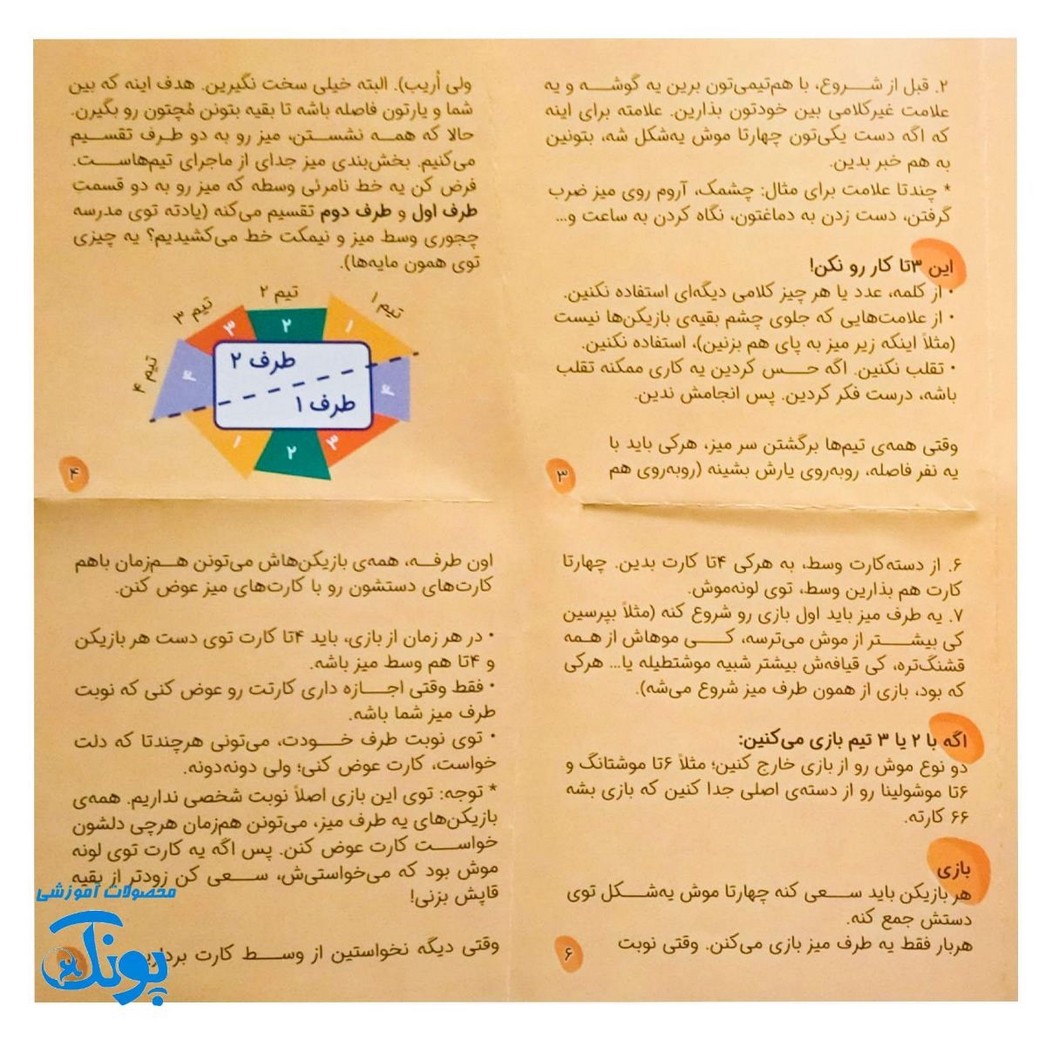 ۲. قبل از شـــروع، با هم‌تیمی‌تون برین یه گوشـــه و یه
علامت غیرکلامی بین خودتون بذارین. علامته برای اینه
که اگه دست یکی‌تون چهارتا موش یه‌شکل شه، بتونین
به هم خبر بدین.
* چندتا علامت برای مثال: چشمک، آروم روی میز ضرب
گرفتن، دست زدن به دماغتون، نگاه کردن به ساعت و...
این ۳تا کار رو نکن!
• از کلمه، عدد یا هر چیز کلامی دیگه‌ای استفاده نکنین.
• از علامت‌هایی که جلوی چشم بقیه‌ی بازیکن‌ها نیست
(مثلاً اینکه زیر میز به پای هم بزنین)، استفاده نکنین.
• تقلب نکنین. اگه حـــس کردین یه کاری ممکنه تقلب
باشه، درست فکر کردین. پس انجامش ندین.
وقتی همه‌ی تیم‌ها برگشتن سر میز، هرکی باید با
یه نفر فاصله، روبه‌روی یارش بشینه (روبه‌روی هم
۳
ولی اُریب). البته خیلی سخت نگیرین. هدف اینه که بین
شما و یارتون فاصله باشه تا بقیه بتونن مُچتون رو بگیرن.
حالا که همـــه نشســـتن، میز رو به دو طـرف تقســـیم
می‌کنیم. بخش‌بندی میز جدای از ماجرای تیم‌هاســـت.
فرض کن یه خط نامرئی وسطه که میز رو به دو قسمتِ
طرف اول و طرف دوم تقسیم می‌کنه (یادته توی مدرسه
چجوری وسط میز و نیمکت خط می‌کشیدیم؟ یه چیزی
توی همون مایه‌ها).
تیم ۱
تیم ۲
تیم ۳
تیم ۴
۱
۲
۳
۴
طرف ۲
طرف ۱
۴
۳
۲
۱
۴
۶. از دسته‌کارت وسط، به هرکی ۴تا کارت بدین. چهارتا
کارت هم بذارین وسط، توی لونه‌موش.
۷. یه طرف میز باید اول بازی رو شروع کنه (مثلاً بپرسین
کی بیشـــتر از موش می‌ترسه، کـــی موهاش از همـه
قشنگ‌تره، کی قیافه‌ش بیشتر شبیه موشتطیله یا... هرکی
که بود، بازی از همون طرف میز شروع می‌شه).
اگه با ۲ یا ۳ تیم بازی می‌کنین:
دو نوع موش رو از بازی خارج کنین؛ مثلاً ۶تا موشتانگ و
۶تا موشولینا رو از دسته‌ی اصلی جدا کنین که بازی بشه
۶۶ کارته.
بازی
هر بازیکن باید ســـعی کنه چهارتا موش یه‌شـــکل توی
دستش جمع کنه.
هربار فقط یه طرف میز بازی می‌کنن. وقتی نوبت
۶
اون طرفـــه، همه‌ی بازیکن‌هاش می‌تونن هـــم‌زمان باهم
کارت‌های دستشون رو با کارت‌های میز عوض کنن.
• در هر زمان از بازی، باید ۴تا کارت توی دست هر بازیکن
و ۴تا هم وسط میز باشه.
• فقط وقتی اجـــازه داری کارتت رو عوض کنی که نوبت
طرف میز شما باشه.
• توی نوبت طرف خـــودت، می‌تونی هرچندتا که دلت
خواست، کارت عوض کنی؛ ولی دونه‌دونه.
* توجه: توی این بازی اصلاً نوبت شخصی نداریم. همه‌ی
بازیکن‌های یه طرف میز، می‌تونن هم‌زمان هرچی دلشون
خواســـت کارت عوض کنن. پس اگه یه کارت توی لونه
موش بود که می‌خواستی‌ش، ســـعی کن زودتر از بقیه
قاپش بزنی!
وقتی دیگه نخواستین از وســـط کارت
محصولات آموزشی
پونک